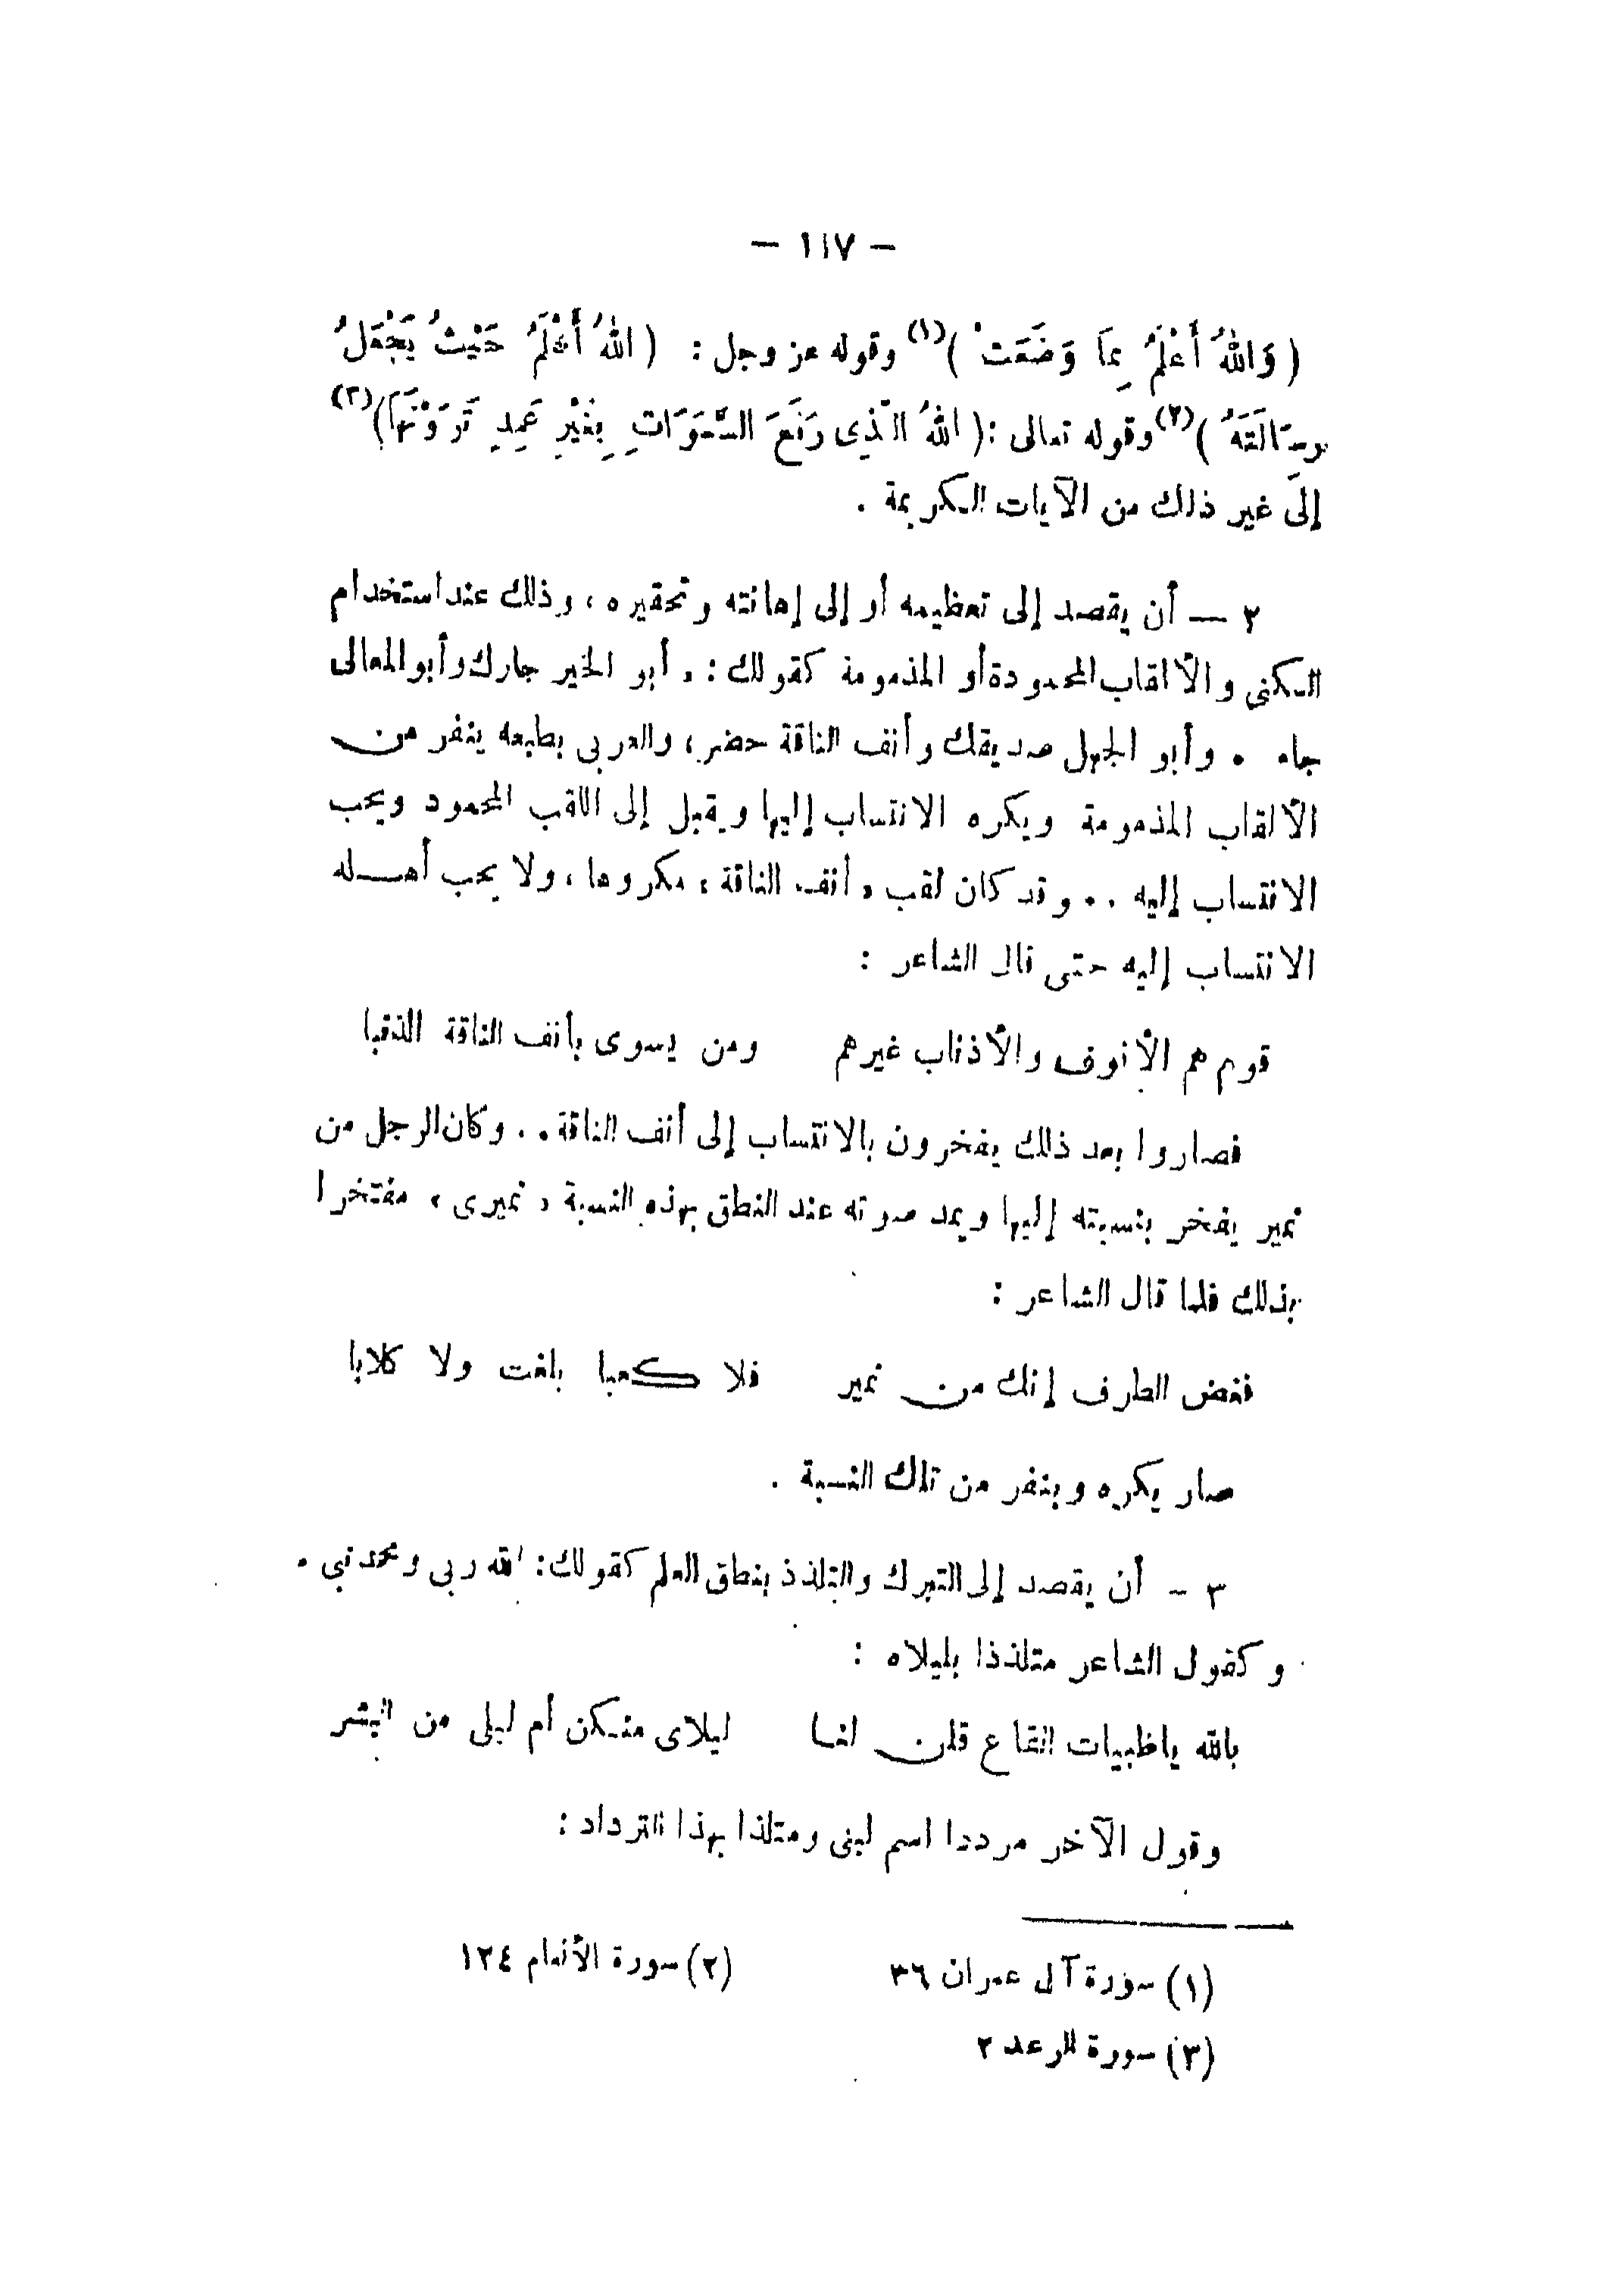 — ١١٧ —
( وَاللهُ أَعْلَمُ بِمَا وَضَعَتْ )(١) وقوله عز وجل : ( اللهُ أَعْلَمُ حَيْثُ يَجْعَلُ
رِسَالَتَهُ )(٢) وقوله تعالى : ( اللهُ الَّذِى رَفَعَ السَّمَوَاتِ بِغَيْرِ عَمَدٍ تَرَوْنَهَا )(٣)
إلى غير ذلك من الآيات الكريمة .
٢ — أن يقصد إلى تعظيمه أو إلى إهانته وتحقيره ، وذلك عند استخدام
الكنى والألقاب المحمودة أو المذمومة كقولك : « أبو الخير جارك وأبو المعالى
جاء . وأبو الجهل صديقك وأنف الناقة حضر ، والعربى بطبعه ينفر من
الألقاب المذمومة ويكره الانتساب إليها ويقبل إلى اللقب المحمود ويحب
الانتساب إليه .. وقد كان لقب « أنف الناقة » مكروها ، ولا يحب أهله
الانتساب إليه حتى قال الشاعر :
قوم هم الأنوف والأذناب غيرهم ومن يسوى بأنف الناقة الذنبا
فصاروا بعد ذلك يفخرون بالانتساب إلى أنف الناقة .. وكان الرجل من
نمير يفخر بنسبته إليها ويمد صوته عند النطق بهذه النسبة « نميرى » مفتخرا
بذلك فلما قال الشاعر :
فغض الطرف إنك من نمير فلا كعبا بلغت ولا كلابا
صار يكره وينفر من تلك النسبة .
٣ - أن يقصد إلى التبرك والتلذذ بنطق العلم كقولك : الله ربى ومحمد نبي .
وكقول الشاعر متلذذا بليلاه :
بالله ياظبيات القاع قلن لنا ليلاى منكن أم ليلى من البشر
وقول الآخر مرددا اسم لبنى ومتلذا بهذا الترداد :
(١) سورة آل عمران ٣٦ (٢) سورة الأنعام ١٢٤
(٣) سورة الرعد ٢